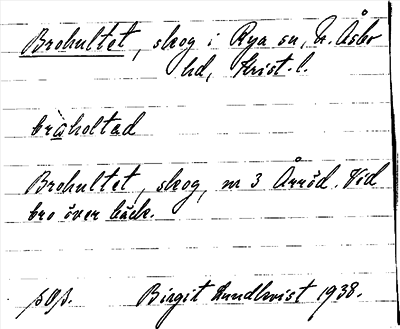 Brohultet, skog i Rya sn, N. Åsbo
hd, Krist. l.
bråholtəd
Brohultet, skog, nr 3 Årröd. Vid
bro över bäck.
Birgit Lundkvist 1938.